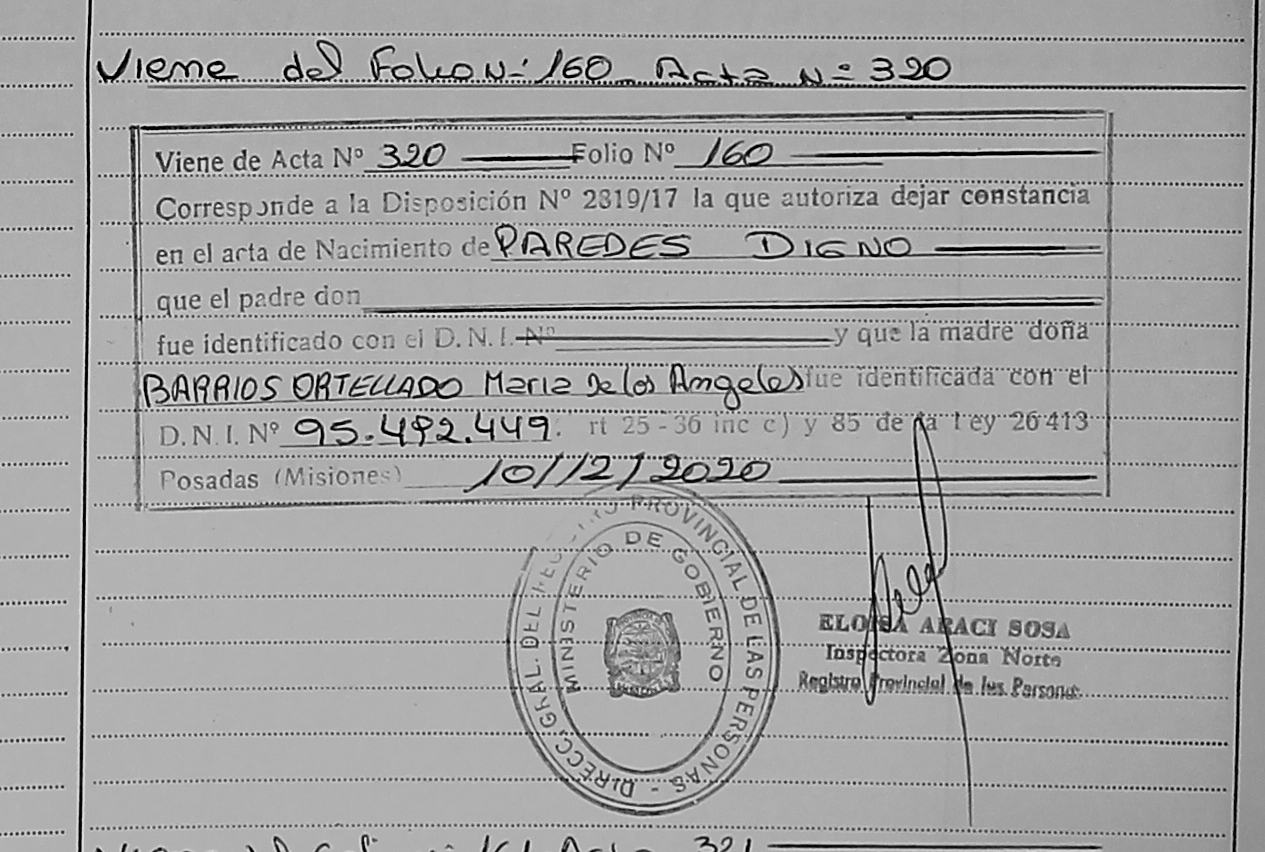 Viene del Folio N: 160 Acta N: 320
Viene de Acta Nº 320 Folio Nº 160
Corresponde a la Disposición Nº 2819/17 la que autoriza dejar constancia
en el acta de Nacimiento de PAREDES DIGNO
que el padre don
fue identificado con el D. N. I. Nº y que la madre doña
BARRIOS ORTELLADO Maria De los Angeles fue identificada con el
D. N. I. Nº 95.492.449. rt 25 - 36 inc c) y 85 de la Ley 26413
Posadas (Misiones) 10/12/2020
DIRECC. GRAL. DEL REGISTRO PROVINCIAL DE LAS PERSONAS -
MINISTERIO DE GOBIERNO
ELOISA ARACI SOSA
Inspectora Zona Norte
Registro Provincial de las Personas
161 Acta 321